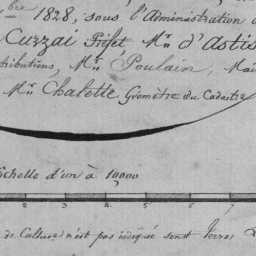 bre 1828, sous l'Administration
Cuzzai Préfet Mrs d'Astis
tributions, Mr Poulain,
Mr Chalette Géomètre du Cadastre
Echelle d'un à 10000
2 3 4 5 6 7
de Culture n'est pas indiqué sont Terres